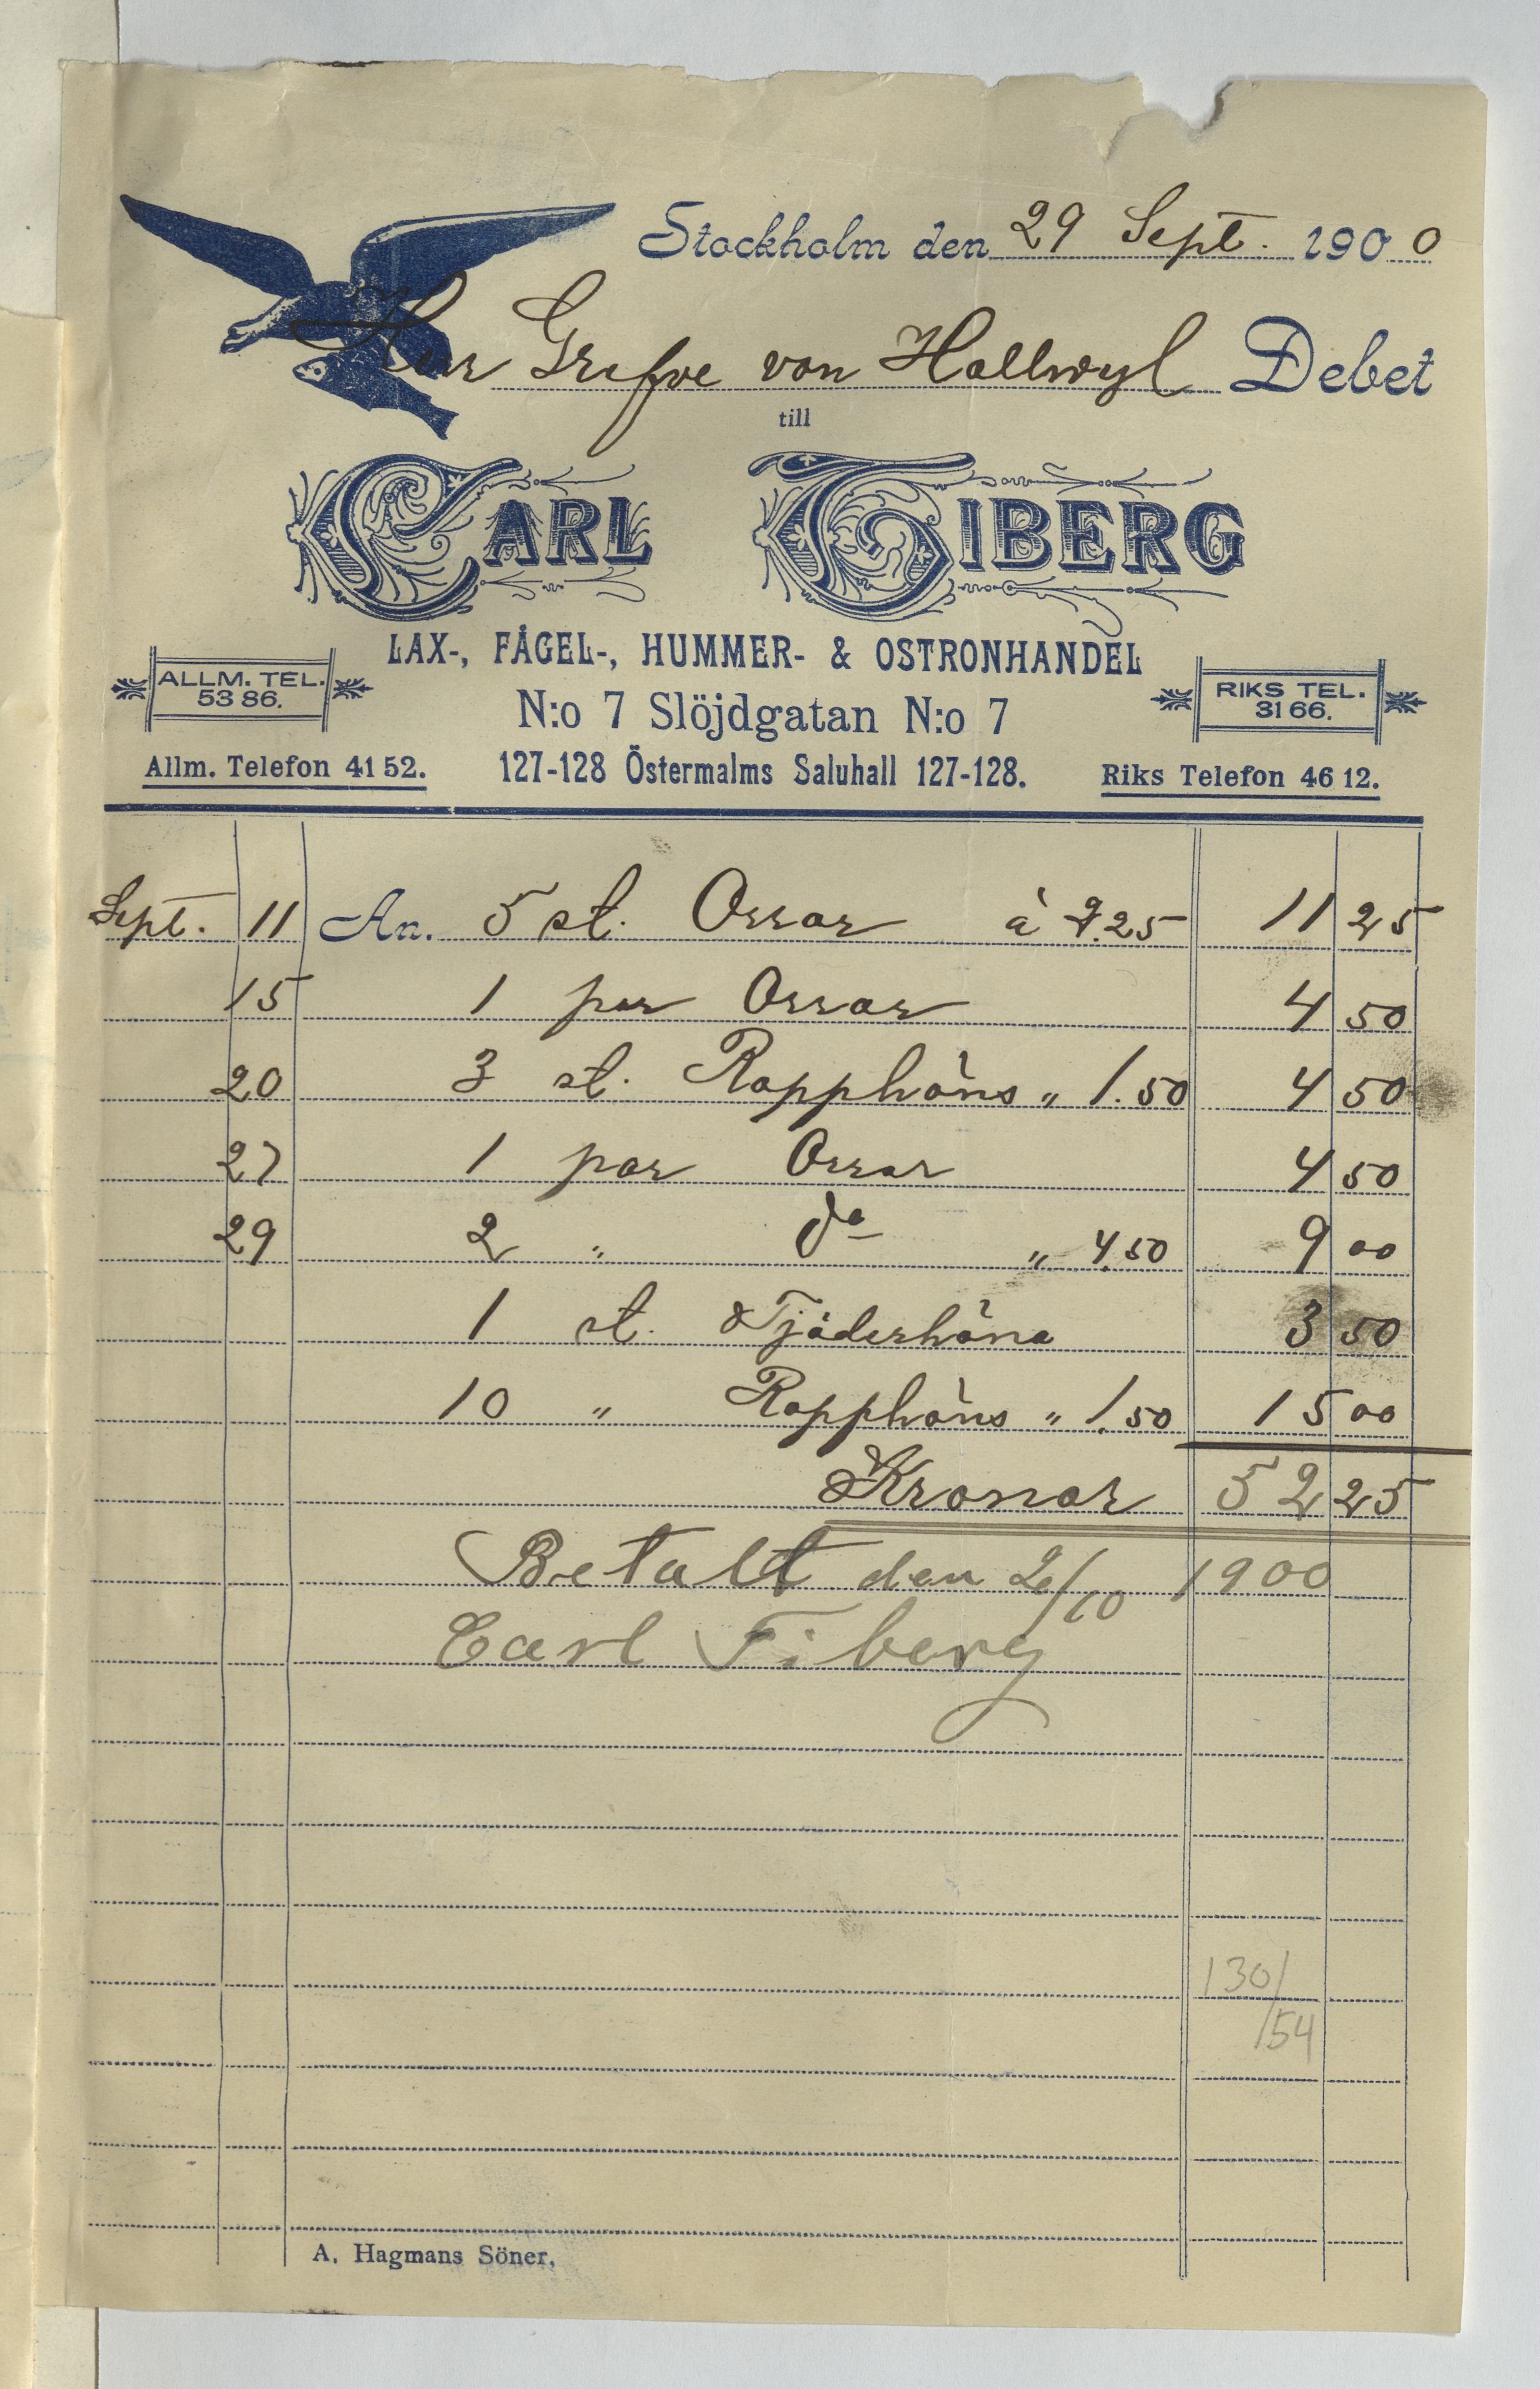 Stockholm den 29 Sept. 1900
Herr Grefve von Hallwyl Debet
till
CARL TIBERG
LAX-, FÅGEL-, HUMMER- & OSTRONHANDEL
ALLM. TEL. 53 86.
N:o 7 Slöjdgatan N:o 7
RIKS TEL. 31 66.
Allm. Telefon 41 52.
127-128 Östermalms Saluhall 127-128.
Riks Telefon 46 12.
Sept. 11 An 5 st. Orrar à 2.25 11 25
15 1 par Orrar 4 50
20 3 st. Rapphöns " 1.50 4 50
27 1 par Orrar 4 50
29 2 " do " 4.50 9 00
1 st. Tjäderhöna 3 50
10 " Rapphöns " 1.50 15 00
Kronor 52 25
Betalt den 2/10 1900
Carl Tiberg
130/
/54
A. Hagmans Söner.